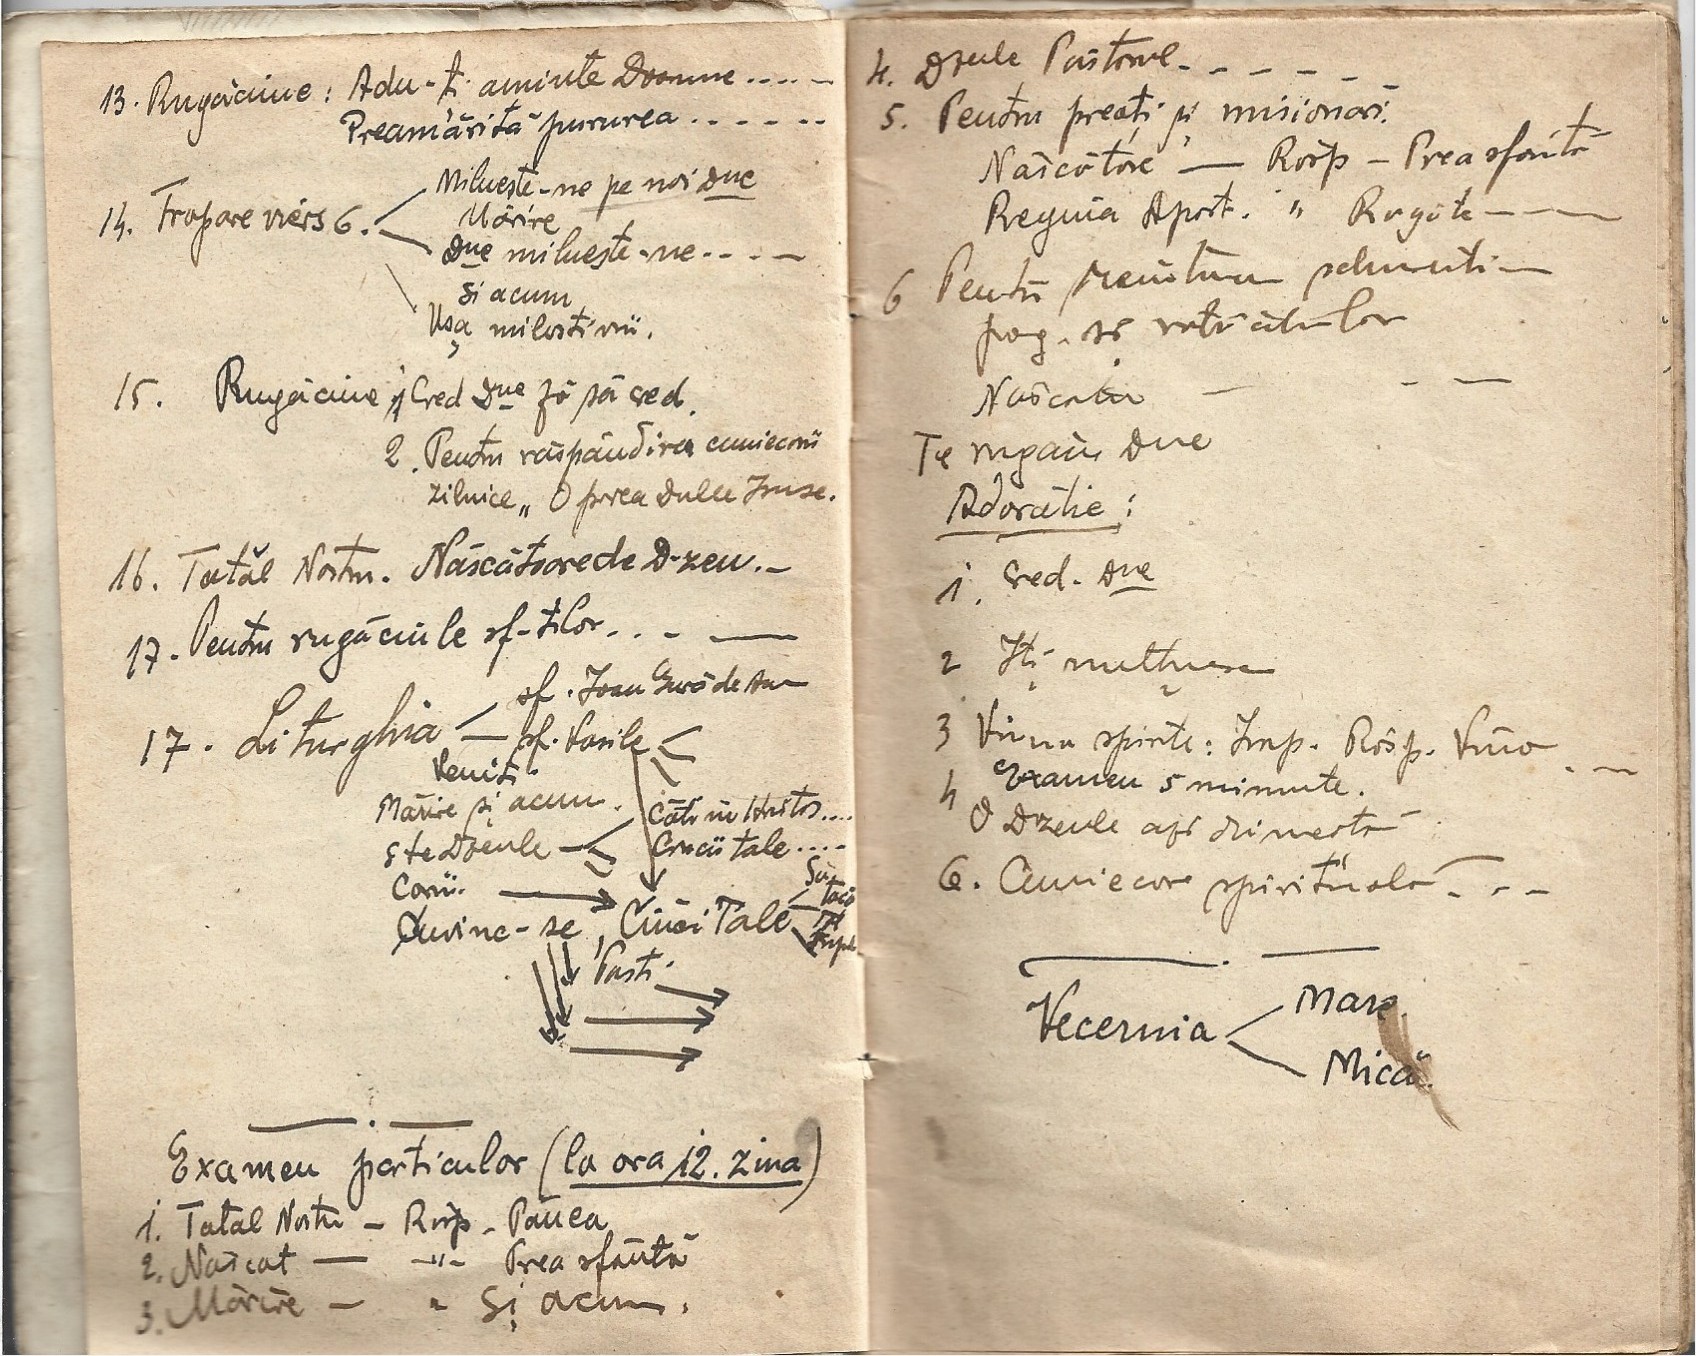 13. Rugăciune: Adu-ți aminte Doamne.....
Preamărită pururea......
Miluește-ne pe noi Dne
14. Tropare viers 6.
Mărire
Dne miluește-ne....
Și acum
Ușa milostivirii.
15. Rugăciune 1 Cred Dne fă să cred.
2. Pentru răspândirea cuminecării
zilnice „ O prea dulce Isuse.
16. Tatăl Nostru. Născătoare de D-zeu.-
17. Pentru rugăciunile sf-ților...
sf. Ioan Gură de Aur
17. Liturghia
sf. Vasile
Veniți
Mărire și acum.
Câți în Hristos....
Ște Dzeule
Crucii tale....
Cuvine-se, Crucii Tale
Paști.
Examen particular (la ora 12. ziua)
1. Tatăl Nostru - Răsp - Pâinea
2. Născăt - -"- Prea sfântă
3. Mărire - " Și acum.
4. Dzeule Păstorul- - - - -
5. Pentru preoți și misionari.
Născătore - Răsp - Prea sfântă
Regina Apost. " Rugăte-
6 Pentru
pog. și
Născăto
Te rugăm Dne
Adorație:
1. Cred. Dne
2 Iți mulțumesc
3 Vino spirte: Imp. Răsp. Vino
4 Examen 5 minute.
O Dzeule
6. Cuminecare spirituală - - -
Vecernia
Mare.
Mică.